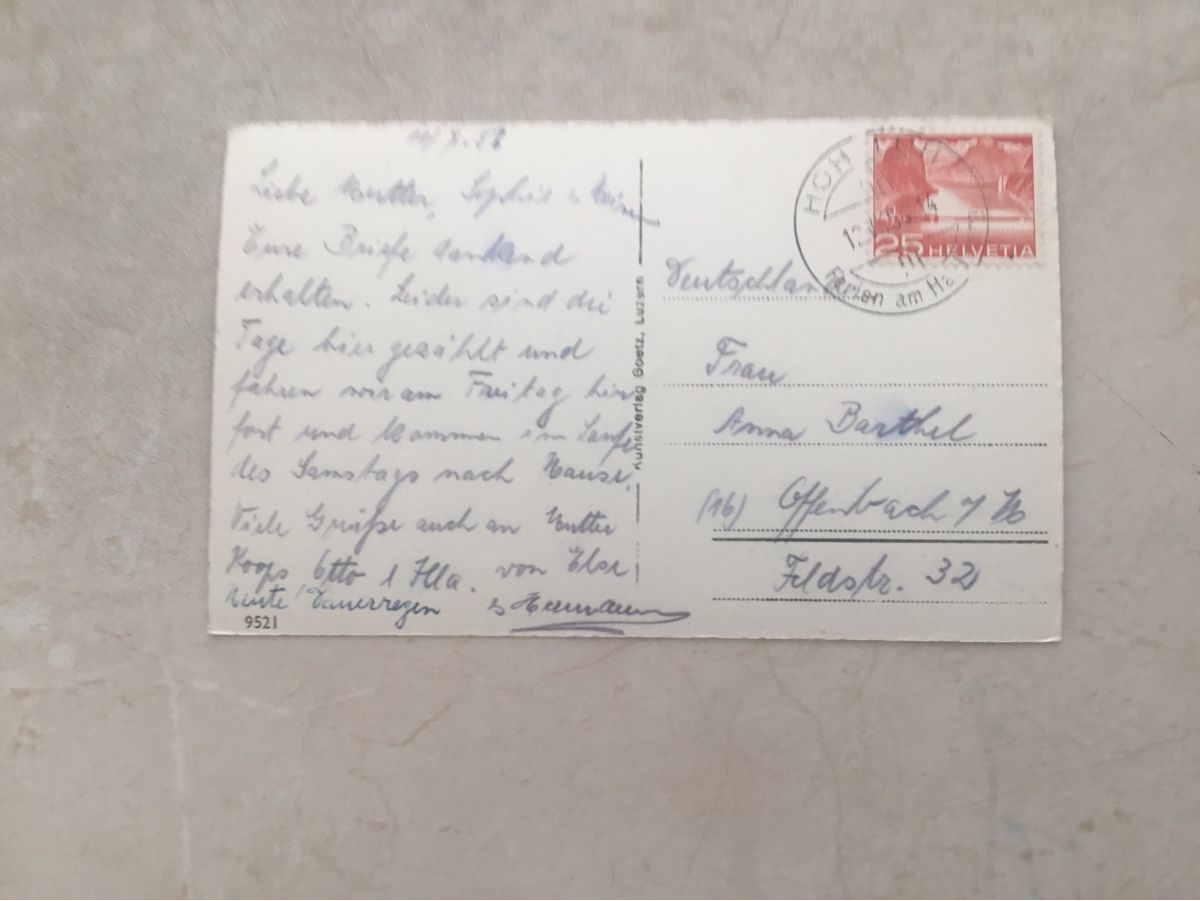 11/7.56
Liebe Mutter, Sophie u.
Eure Briefe dankend
erhalten. Leider sind die
Tage hier gezählt und
fahren wir am Freitag hier
fort und kommen im Laufe
des Samstags nach Hause.
Viele Grüße auch an Mutter
Koops, Otto u Illa. von Else
Heute Dauerregen u Hermann
9521
Kunstverlag Goetz, Luzern
HOHFLUH
Ferien am Hasliberg
25 HELVETIA
Deutschland
Frau
Anna Barthel
(16) Offenbach / M
Feldstr. 32